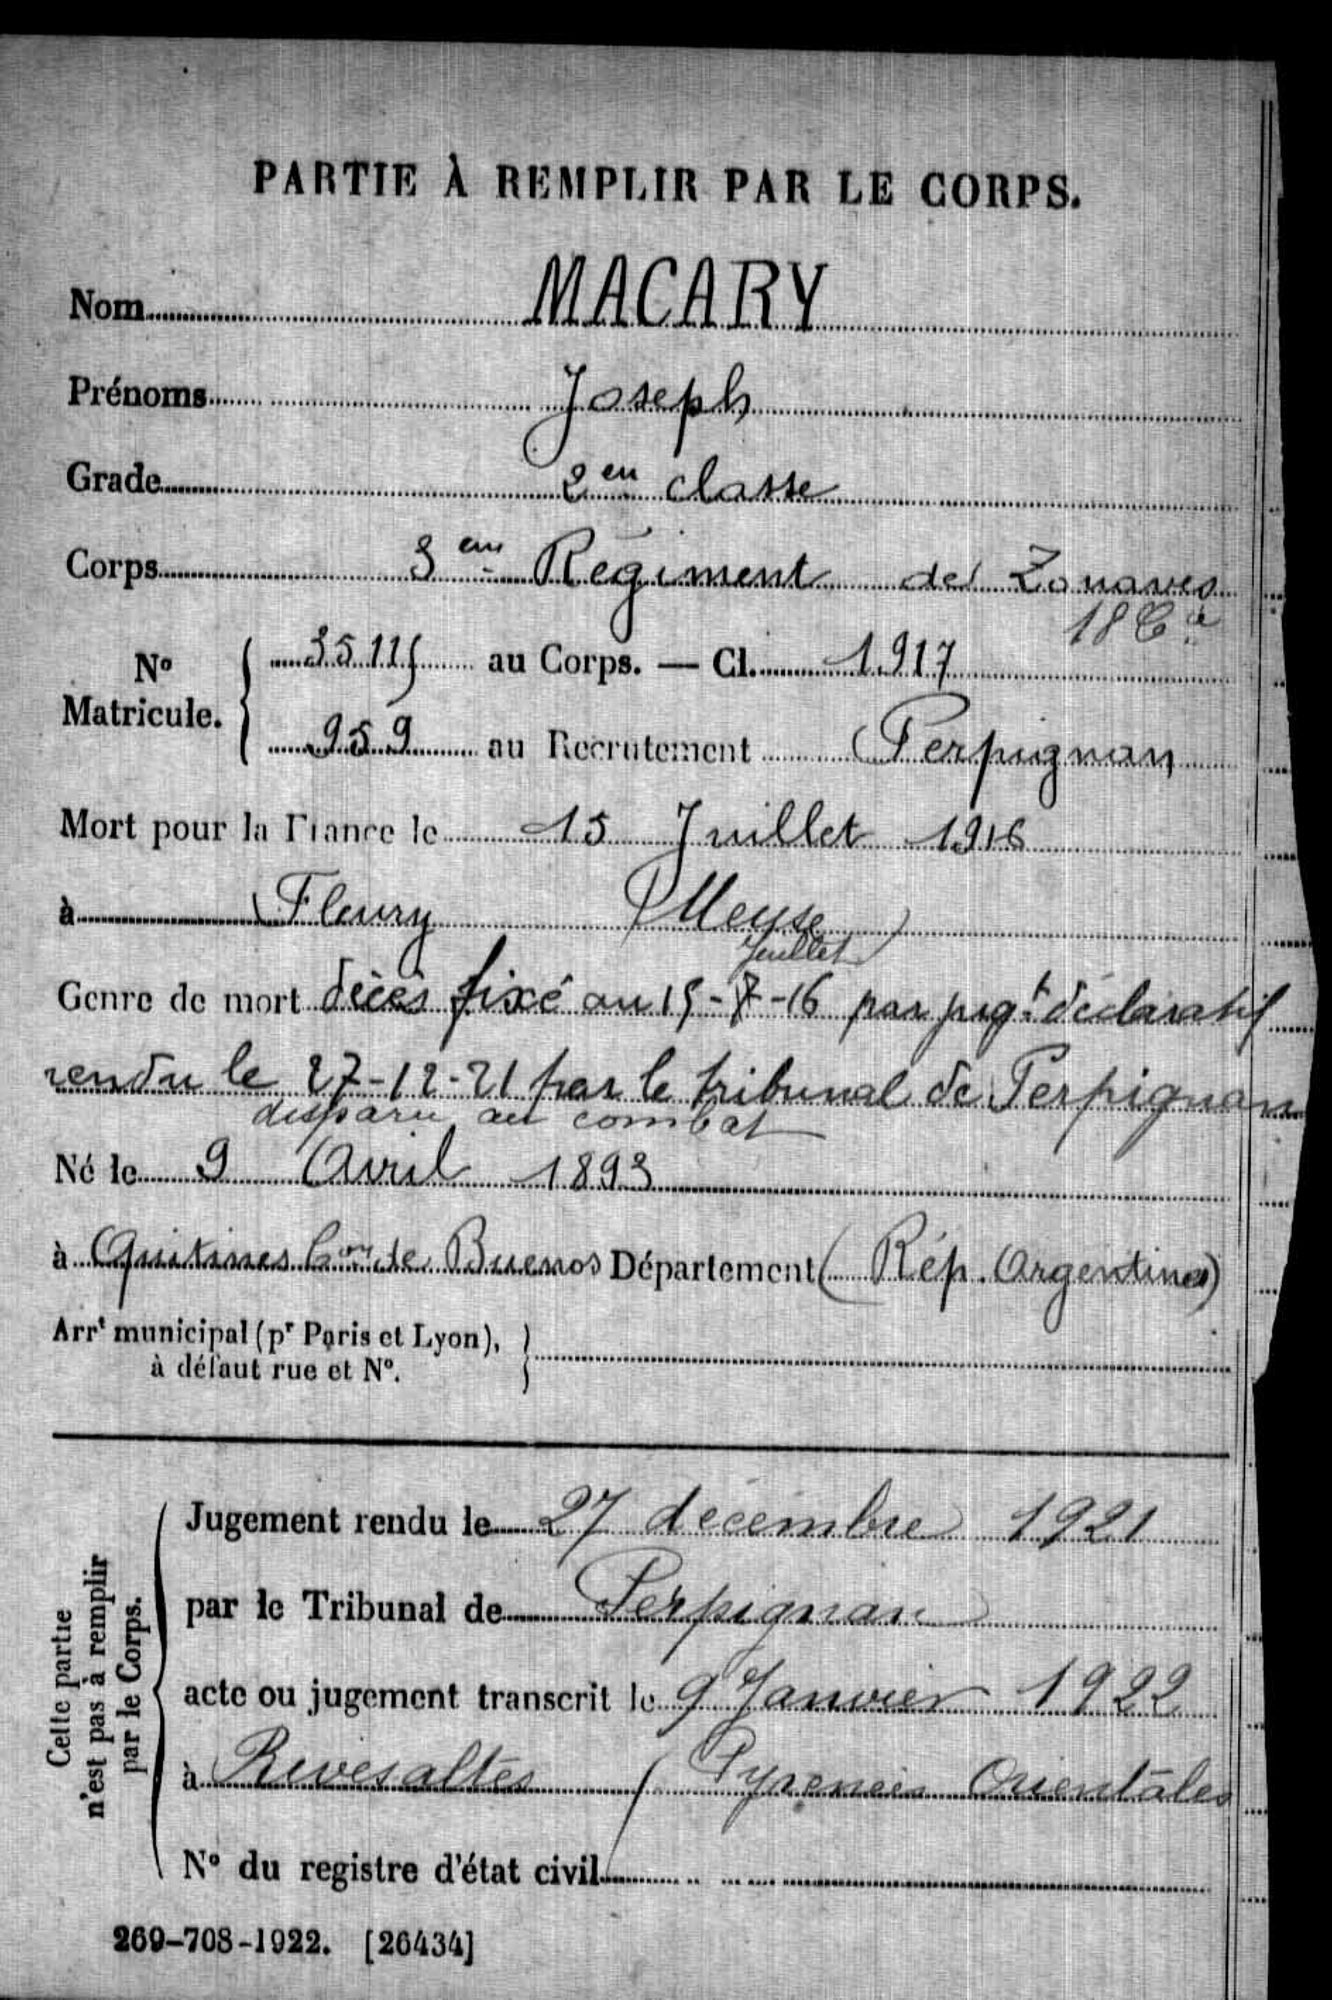 PARTIE À REMPLIR PAR LE CORPS.
Nom MACARY
Prénoms Joseph
Grade 2em classe
Corps 3em Régiment de Zouaves
18 Cie
No Matricule. 35115 au Corps. — Cl. 1917
959 au Recrutement Perpignan
Mort pour la France le 15 Juillet 1916
à Fleury (Meuse)
Juillet
Genre de mort décès fixé au 15-7-16 par jugt déclaratif
rendu le 27-12-21 par le tribunal de Perpignan
disparu au combat
Né le 9 Avril 1893
à de Buenos Département (Rép. Argentine)
Arrt municipal (pr Paris et Lyon),
à défaut rue et No.
Cette partie
n'est pas à remplir
par le Corps.
Jugement rendu le 27 décembre 1921
par le Tribunal de Perpignan
acte ou jugement transcrit le 9 Janvier 1922
à Rivesaltes (Pyrénées Orientales
No du registre d'état civil
269-708-1922. [26434]